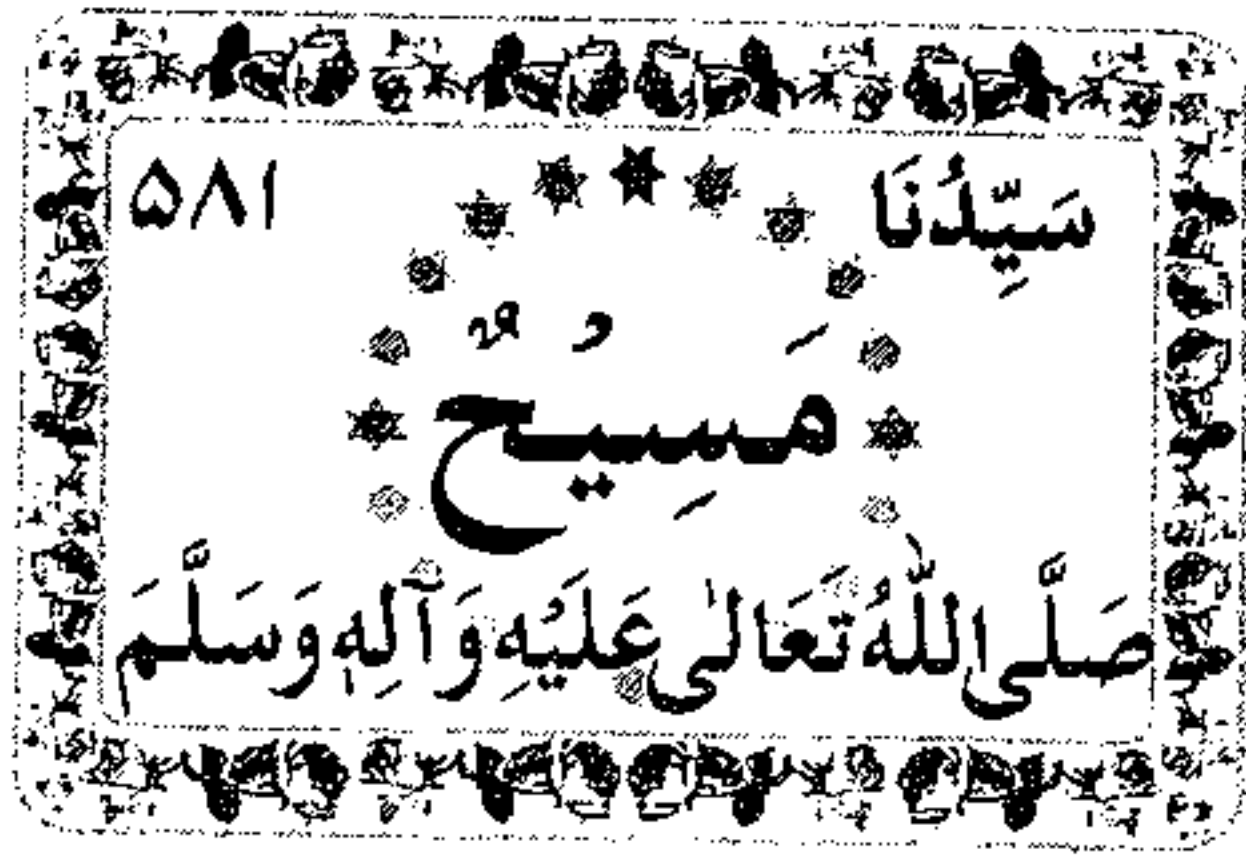 سَيِّدُنَا ۵۸۱
مَسِيْحٌ
صَلَّى اللّٰهُ تَعَالٰى عَلَيْهِ وَآلِهٖ وَسَلَّمَ